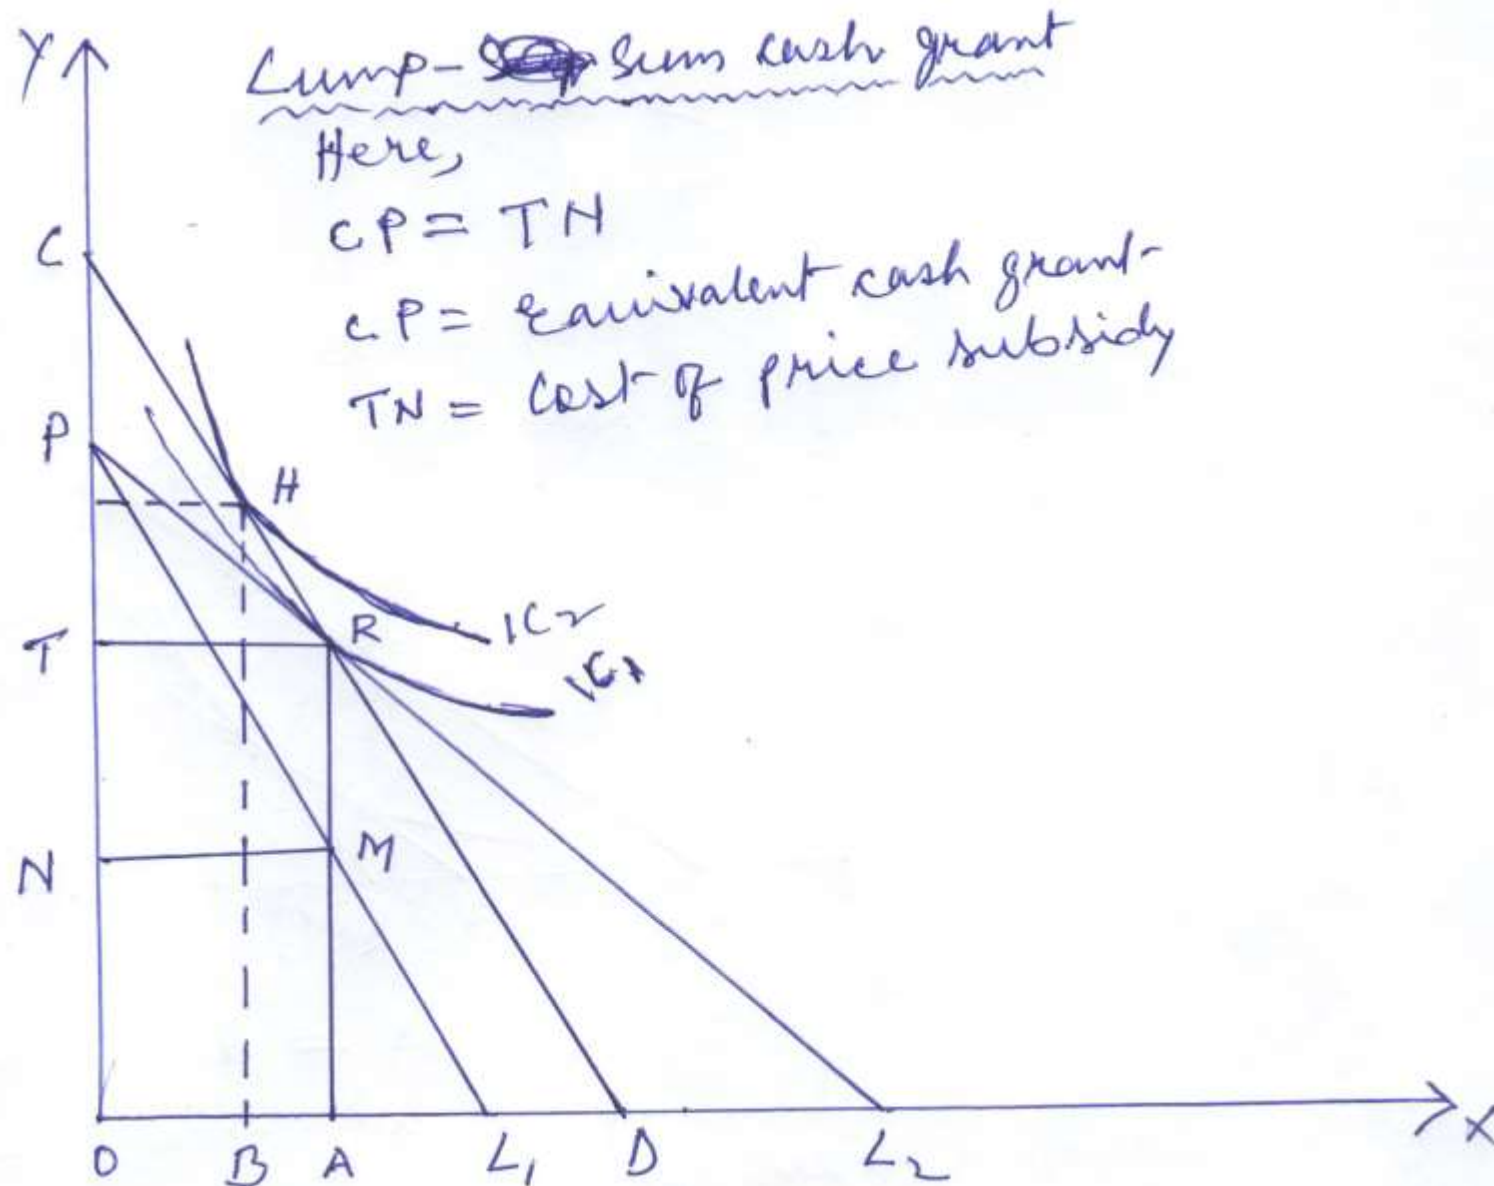 Y
Lump-Sum cash grant
Here,
CP = TN
CP = Equivalent cash grant
TN = Cost of price subsidy
C
P
H
T
R
IC2
IC1
N
M
O B A L1 D L2 X